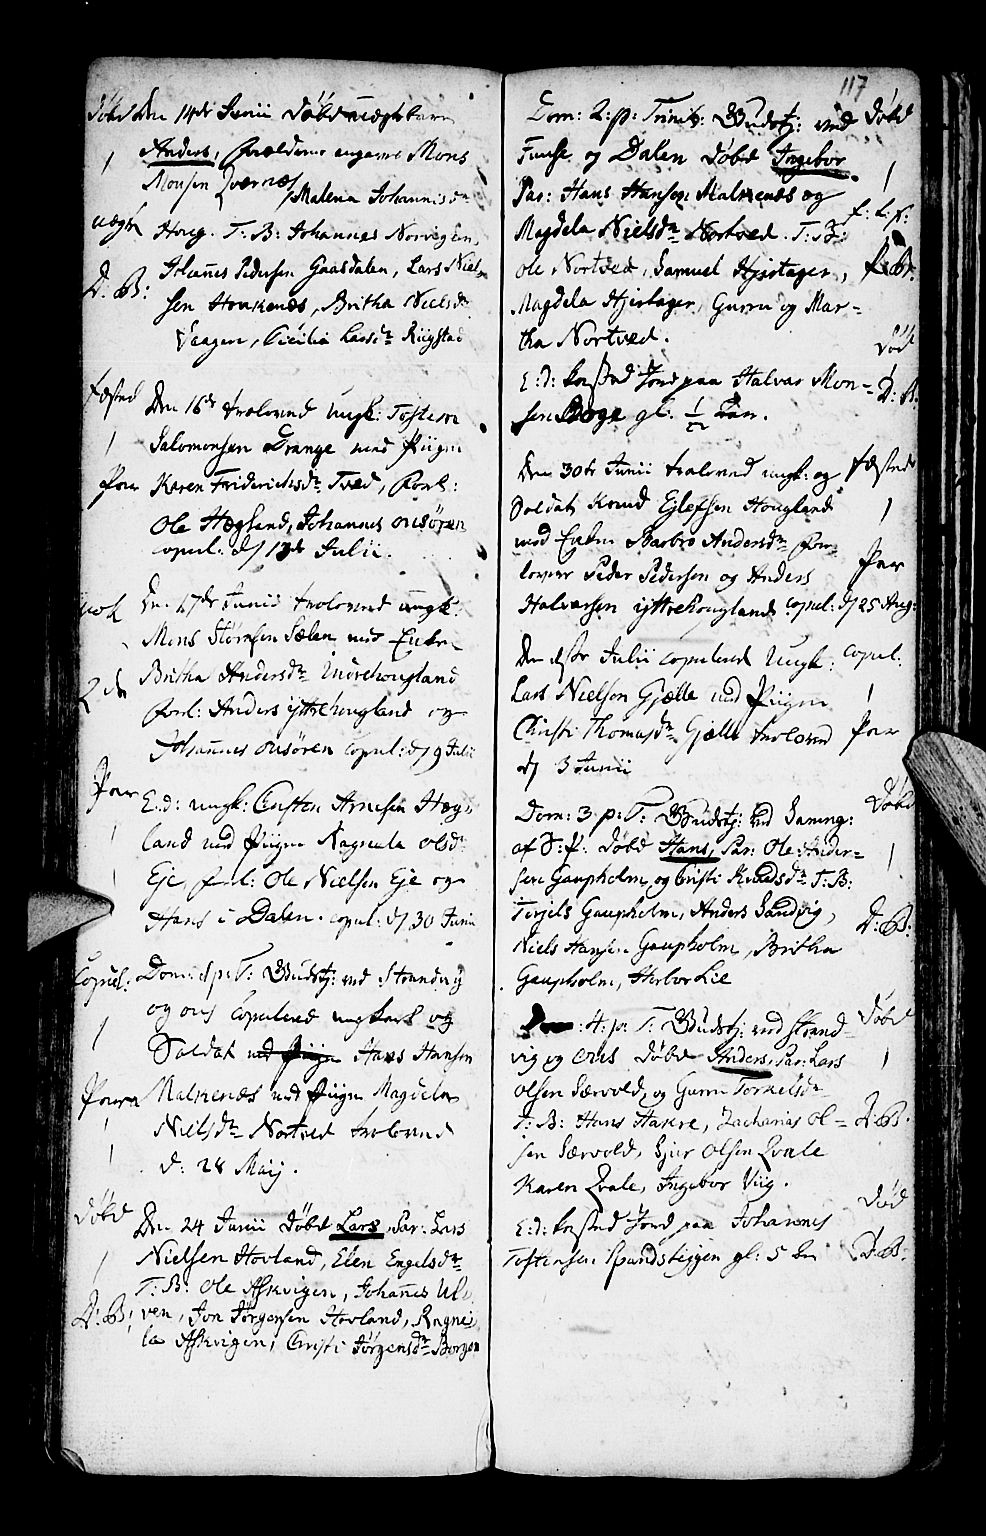 117
Døbd Den 14de Junii Døbd uægte barn
1 Anders, Forældrene angaves Mons
Monsen Qværnæs, Malena Johannisdr
uægte Houg. T: B: Johannes Norvigen,
D: B: Johannes Pedersen Gaasdalen, Lars Niel-
sen Houkenæs, Britha Nielsdr
Vaagen, Cicilia Larsdr Rügstad
fæsted Den 16de trolovend ungk: Tosten
1 Salomonsen Drange med Piigen
Par Karen Friderichsdr Tved, Forl:
Ole Hægland, Johannes onsøren
copul: d/ 13de Julii.
nok Den 17de Junii trolovend ungk
Mons Størksen Sælen med Enken
2den Britha Andersdr Indrehougland
Forl: Anders ÿttrehougland og
Johannes onsøren copul: d/ 9 Julii
Par E: d: ungk: Carsten Arnesen Hæg-
1 land med Piigen Ragnela olsdr
Eje, forl: Ole Nielsen Eje og
Hans i Dalen. copul: d/ 30 Junii
Copul: Dom: 1 p: T: Gudstj: ved Strandvig
og ons Copulered ungkarl og
1 Soldat ved Piige Hans Hansen
Parra Malnenæs med Piigen Magdela
Nielsdr Nortved trolovend
1 d: 28 Maij.
Døbd Den 24 Junii Døbd Lars, Par: Lars
1 Nielsen Hovland, Elen Engelsdr
T: B: Ole Askvigen, Johannes Ul-
D: B: ven, Jon Jørgensen Hovland, Ragnei-
la Askvigen, Christi Jørgensdr Borgen
Dom: 2: p: Trinit: Gudstj: ved Døbd
Fuuse og Dalen Døbd Ingebor 1
Par: Hans Hansen Malnenæs og
Magdela Nielsdr Nortved. T: B:
Ole Nortved, Samuel Hjertager,
Magdela Hjertager, Guru og Mar-
tha Nortved. Død
E: d: kasted Jord paa Halvar Mon- D: B:
sen Boge gl: 1/2 Aar.
Den 30te Junii trolovend ungk: og fæsted
Soldat Knud Ejlefsen Hougland 1
med Enken Barbro Andersdr For-
lovere Peder Pedersen og Anders Par
Halvorsen ÿttrehougland copul: d/ 25 Aug:
Den 1ste Julii copulered Ungk: copul:
Lars Nielsen Gjælle med Piigen 1
Christi Thomasdr Gjælle trolovend Par
d/ 3 Junii
Dom: 3 p: T: Gudstj: ved Saming: Døbd
af S: P: Døbd Hans, Par: Ole Ander- 1
sen Gaupholm og Cristi Knudsdr T: B:
Terjels Gaupholm, Anders Sandvig, D: B:
Niels Hansen Gaupholm, Britha
Gaupholm, Herbor Lie
Dom: 4: p: T: Gudstj: ved Strand- Døbd
vig og ons Døbd Anders, Par: Lars 1
Olsen Særvold, og Guru Torkelsdr
T: B: Hans Hatre, Zacharias Ol- D: B:
sen Særvold, Sjur Olsen Qvale
Karen Qvale, Ingebor Viig. Død
E: d: kasted Jord paa Johannes
Tostensen Spundsteggen gl: 5 D: B: